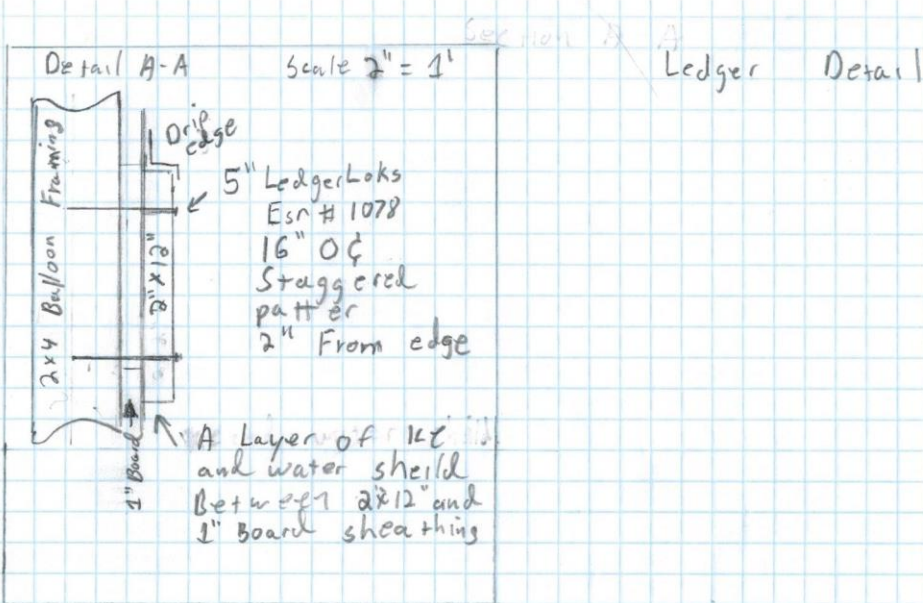 Section A A
Detail A-A Scale 2" = 1'
Ledger Detail
Drip
edge
2x4 Balloon Framing
5" LedgerLoks
Esr # 1078
16" O¢
Staggered
patter
2" From edge
2"x12"
1" Board
A Layer of Ice
and water sheild
Between 2"x12" and
1" Board sheathing